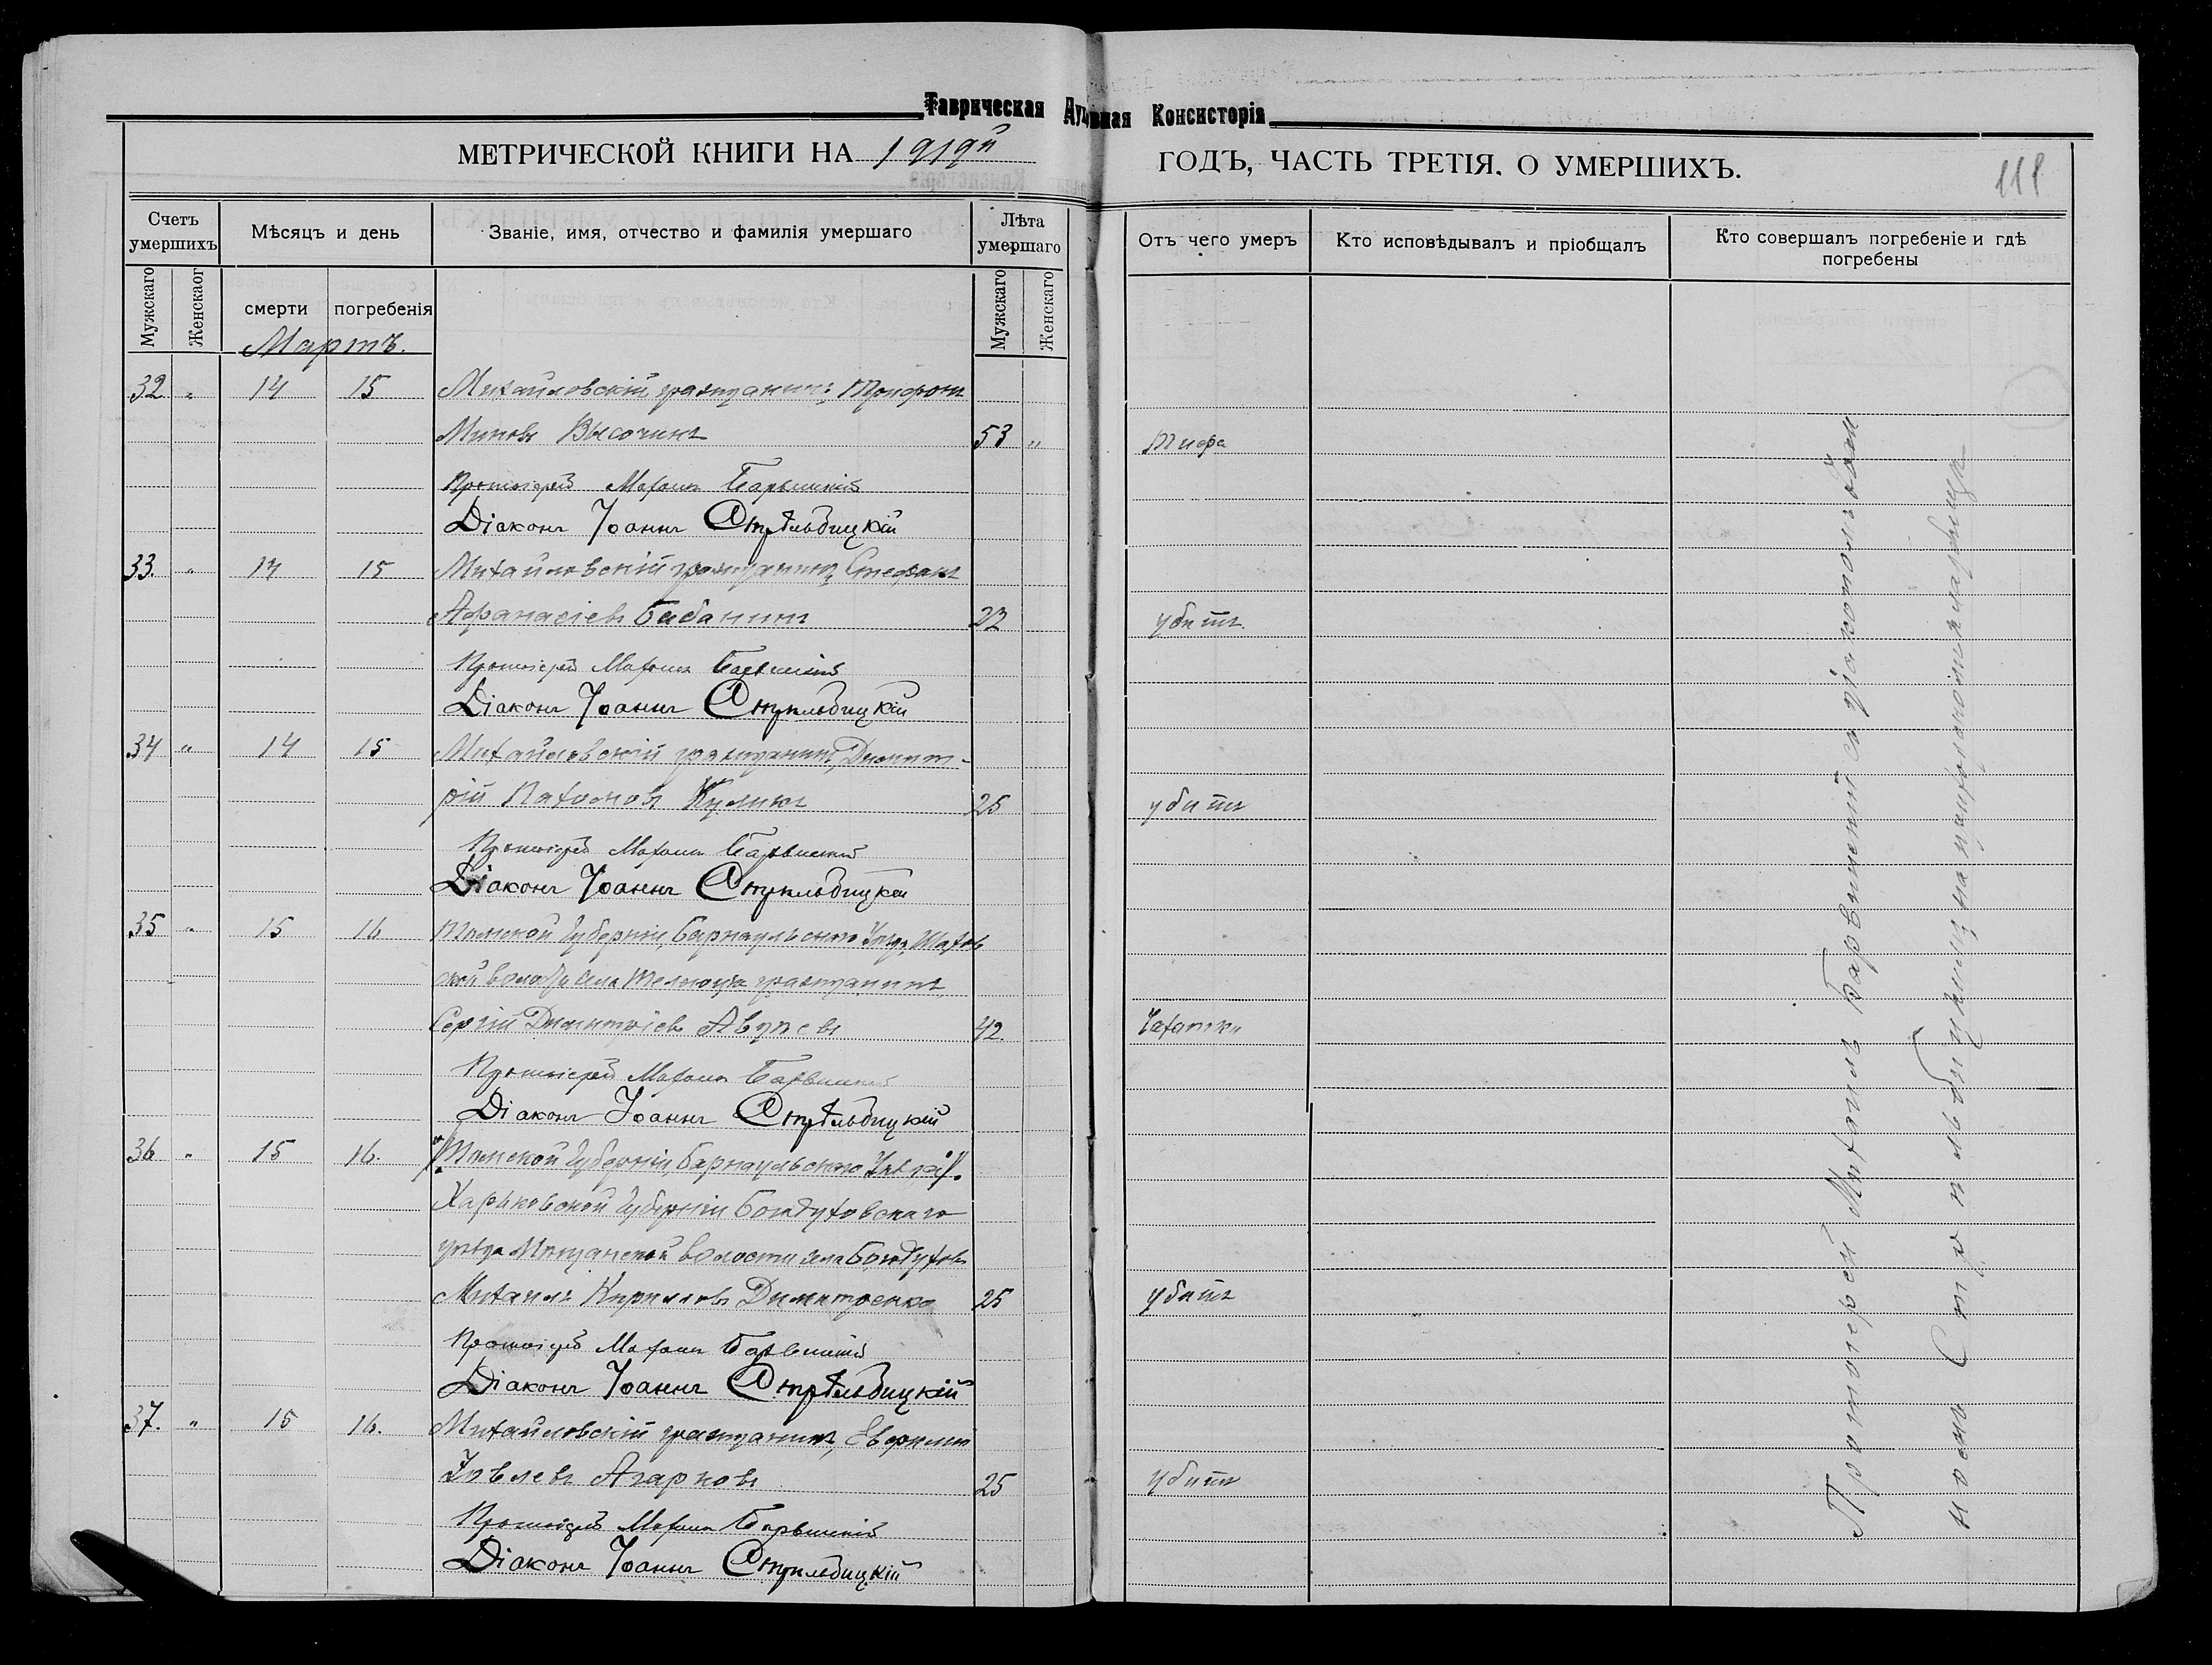 Таврическая Духовная Консисторія
МЕТРИЧЕСКОЙ КНИГИ НА 1919й ГОДЪ, ЧАСТЬ ТРЕТІЯ, О УМЕРШИХЪ.
111
Счетъ умершихъ
Мѣсяцъ и день
Званіе, имя, отчество и фамилія умершаго
Лѣта умершаго
Отъ чего умеръ
Кто исповѣдывалъ и пріобщалъ
Кто совершалъ погребеніе и гдѣ погребены
Мужскаго
Женскаог
смерти
погребенія
Мужскаго
Женскаго
Мартъ.
32. " 14 15 Михайловскій гражданинъ Трифонъ
Миновъ Височинъ 53 " Тифа
Протоіерей Михаилъ Барвинскій
Діаконъ Іоаннъ Стрѣльбицкій
33. " 14 15 Михайловскій гражданинъ, Стефанъ
Афанасіевъ Бабанинъ 22 убитъ.
Протоіерей Михаилъ Барвинскій
Діаконъ Іоаннъ Стрѣльбицкій
34 " 14 15 Михайловскій гражданинъ, Димит-
рій Пахомовъ Куликъ 25 убитъ
Протоіерей Михаилъ Барвинскій
Діаконъ Іоаннъ Стрѣльбицкій
35 " 15 16 Томской Губерніи, Барнаульскаго Уѣзда,
ской волости села гражданинъ
Сергій Димитріевъ 42. Чахотки
Протоіерей Михаилъ Барвинскій
Діаконъ Іоаннъ Стрѣльбицкій
36 " 15 16. Томской Губерніи, Барнаульскаго Уѣзда.
Харьковской Губерніи Богодуховскаго
уѣзда волости села Богодуховъ
Михаилъ Кирилловъ Димитренко 25 убитъ
Протоіерей Михаилъ Барвинскій
Діаконъ Іоаннъ Стрѣльбицкій
37. " 15 16. Михайловскій гражданинъ,
Іовлевъ Агарковъ 25 Убитъ
Протоіерей Михаилъ Барвинскій
Діаконъ Іоаннъ Стрѣльбицкій
Протоіерей Михаилъ Барвинскій съ діакономъ Іоан
номъ Стрѣльбицкимъ на приходскомъ кладбищѣ